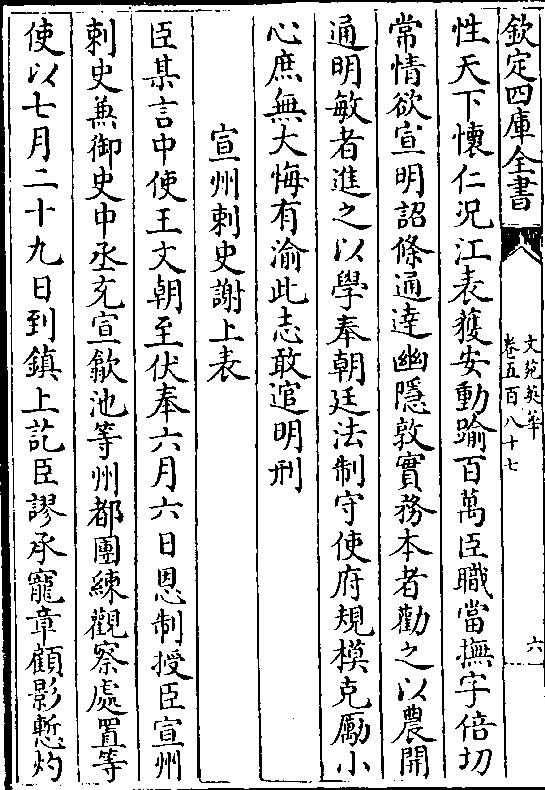 欽定四庫全書
文苑英華
卷五百八十七
六
性天下懷仁況江表獲安動踰百萬臣職當撫字倍切
常情欲宣明詔條通達幽隱敦實務本者勸之以農開
通明敏者進之以學奉朝廷法制守使府規模克勵小
心庶無大悔有渝此志敢逭明刑
宣州刺史謝上表
臣某言中使王文朝至伏奉六月六日恩制授臣宣州
刺史兼御史中丞充宣歙池等州都團練觀察處置等
使以七月二十九日到鎮上訖臣謬承寵章顧影慙灼